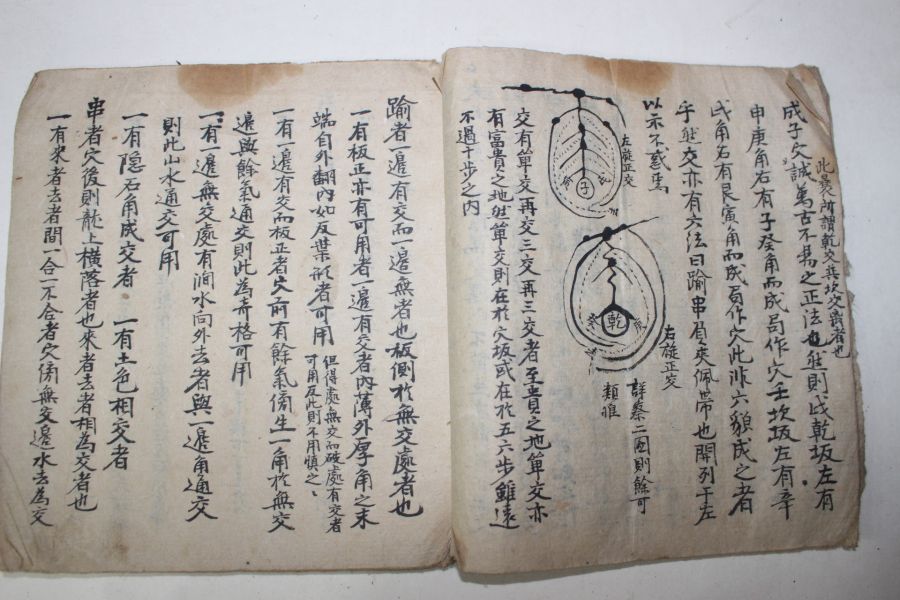 此景所謂乾交其坎交齊者也
成子穴誠萬古不易之正法也然則戌乾坂左有
申庚角右有子癸角而成局作穴壬坎坂左有辛
戌角右有艮寅角而成局作穴此非六貌成之者
乎然交亦有六法曰踰串局夾佩帶也開列于左
以示不惑焉
左旋正交
子
右旋正交
乾
詳察二圖則餘可
類推
交有單交再交三交再三交者至貴之地單交亦
有富貴之地然單交則在於穴坂或在於五六步雖遠
不過十步之內
踰者一邊有交而一邊無者也板側於無交處者也
一有板正亦有可用者一邊有交者內薄外厚角之末
端自外翻內如反葉形者可用 但得處無交而破處有交者
可用反此則不用慎之
一有一邊有交而板正者穴前有餘氣傍生一角於無交
邊與餘氣通交則此為奇格可用
一有一邊無交處有澗水向外去者與一邊角通交
則此山水通交可用
一有隱石角成交者 一有土色相交者
串者穴後則龍上橫落者也來者去者相為交者也
一有來者去者間一合一不合者穴傍無交邊水去為交